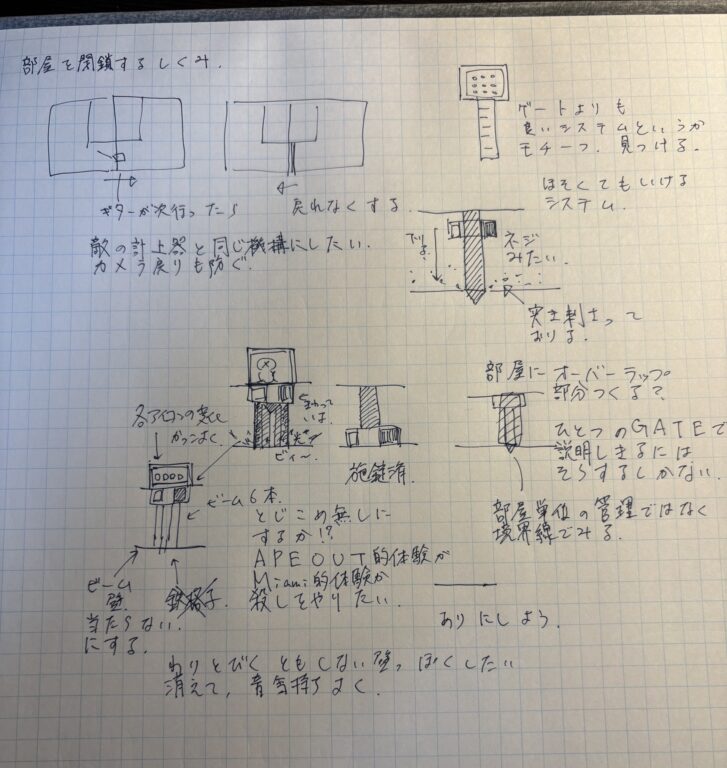 部屋を閉鎖するしくみ.
ゲートよりも
良いシステムというか
モチーフ. 見つける.
ほそくてもいける
システム.
ギターが次行ったら
戻れなくする.
敵の計上器と同じ機構にしたい.
カメラ戻りも防ぐ.
ネジ
みたい.
突き刺さって
おりる.
部屋にオーバーラップ
部分つくる?
ひとつのGATEで
説明しきるには
そうするしかない.
部屋単位の管理ではなく
境界線でみる.
かっこよく.
ビィ〜
施錠済.
ビーム6本.
とじこめ無しに
するか!?
APEOUT的体験が
Miami的体験か
殺しをやりたい.
ありにしよう.
ビーム
壁.
当たらない.
にする.
鉄格子.
わりとびくともしない壁っぽくしたい
消えて, 音気持ちよく.